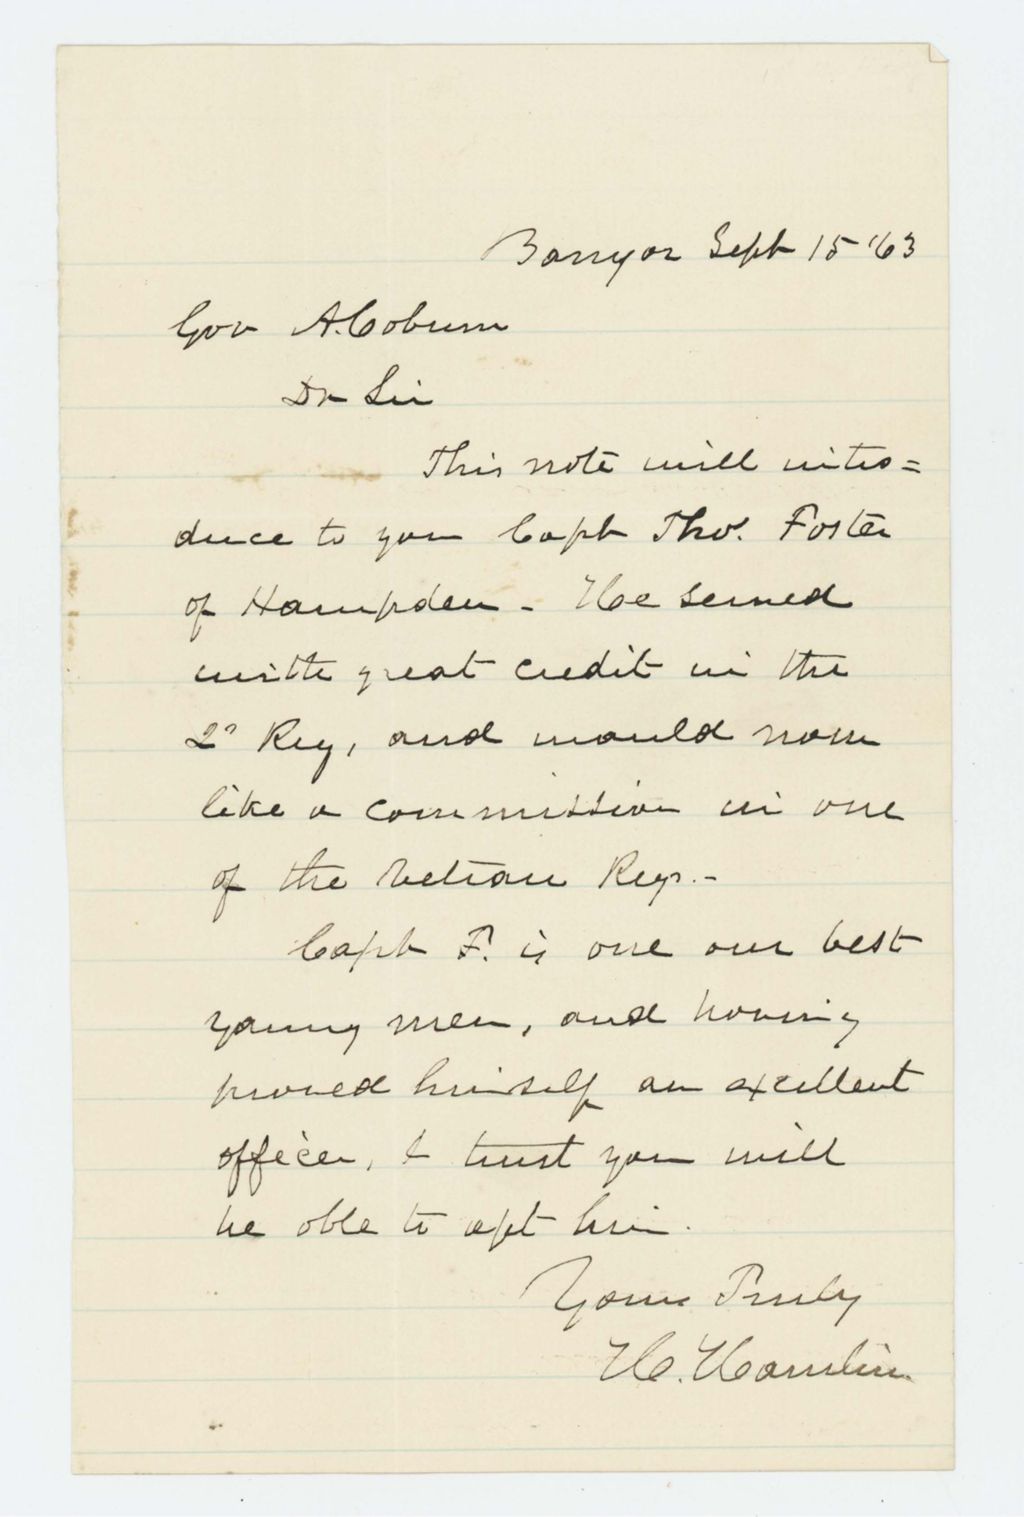 Bangor Sept 15 '63
Gov A. Coburn
Dr Sir
This note will intro=
duce to you Capt Thos. Foster
of Hampden - He served
with great credit in the
2d Reg, and would now
like a commission in one
of the Vetran Regs. -
Capt F. is one our best
young men, and having
proved himself an excellent
officer, I trust you will
be able to apt him.
Yours Truly
H. Hamlin